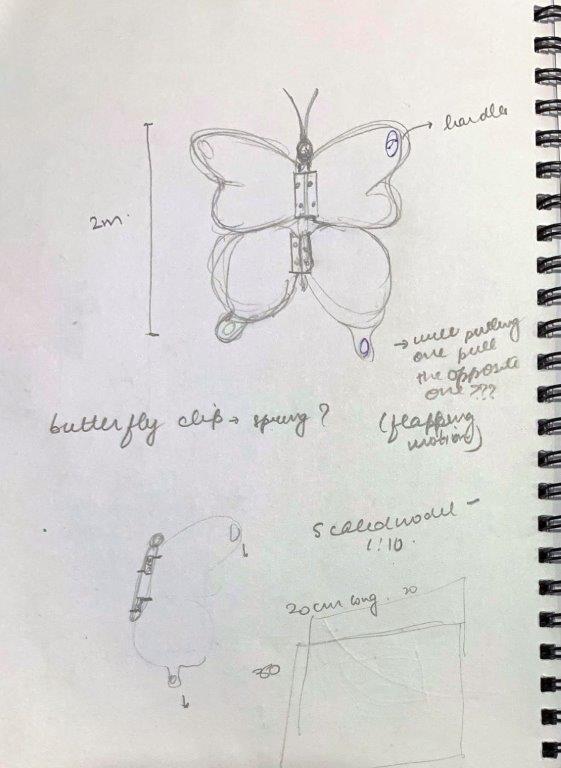 handle
2m.
→ will pulling
one pull
the opposite
one ???
(flapping
motion)
butterfly clip → spring ?
Scaled model -
1:10.
20cm long. 20